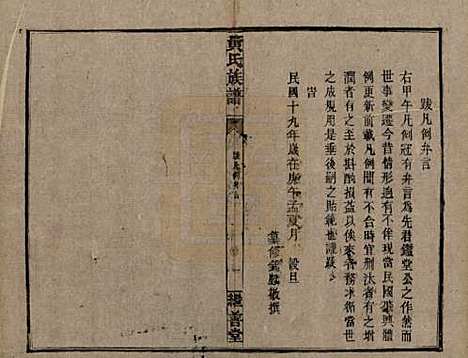 跋凡例弁言
右甲午凡例冠有弁言為先君鑑堂公之作然而
世事變遷今昔情形迥有不侔現當民國肇興體
例更新前載凡例間有不合時宜刪汰者有之增
潤者有之至於斟酌損益以俟來者務求循當世
之成規用是垂後嗣之貽範也謹跋
旹
民國十九年歲在庚午孟夏月 穀旦
纂修 鑑 敬撰
黃氏族譜
跋凡例弁言
繼善堂